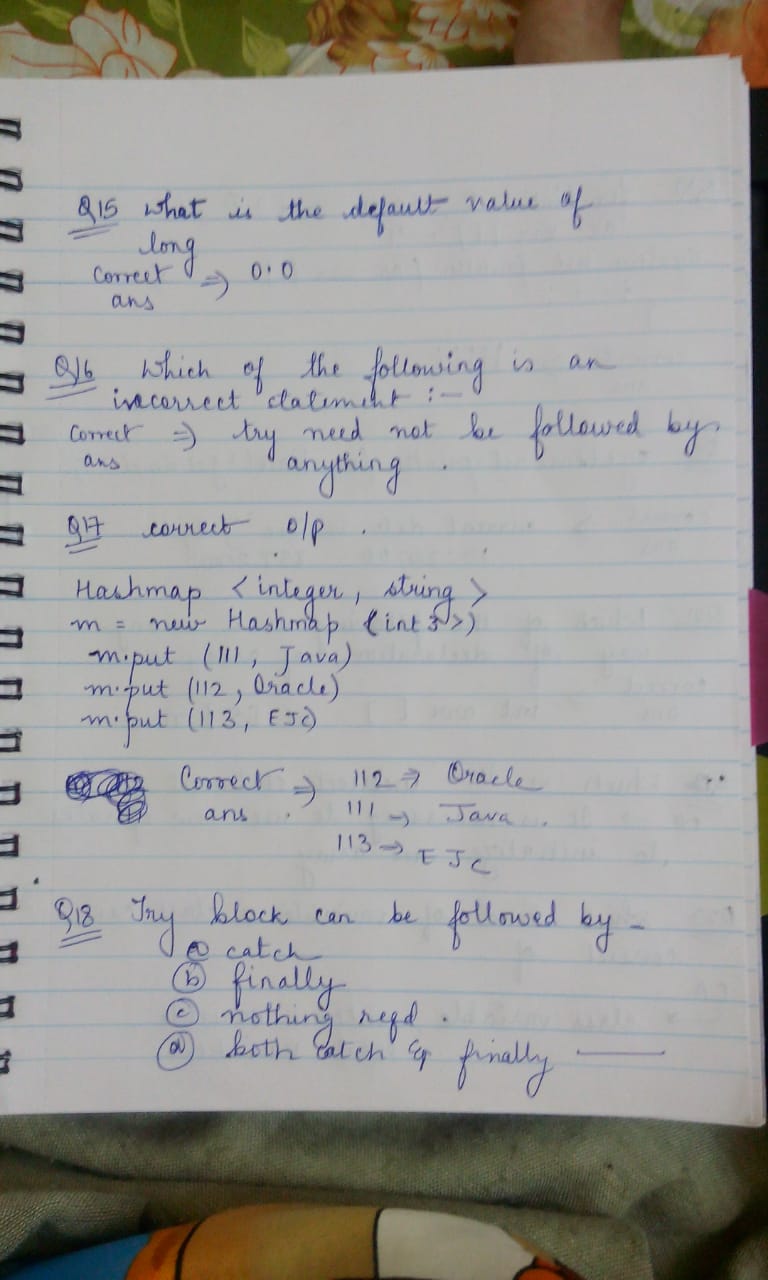 Q15 What is the default value of
long
Correct ans ⇒ 0.0
Q16 Which of the following is an
incorrect statement :-
Correct ans ⇒ try need not be followed by
anything.
Q17 correct o/p.
Hashmap <integer, string>
m = new Hashmap
m.put (111, Java)
m.put (112, Oracle)
m.put (113, EJC)
Correct ans. ⇒ 112 → Oracle
111 → Java.
113 → EJC
Q18 Try block can be followed by -
(a) catch
(b) finally
(c) nothing reqd.
(d) both catch & finally